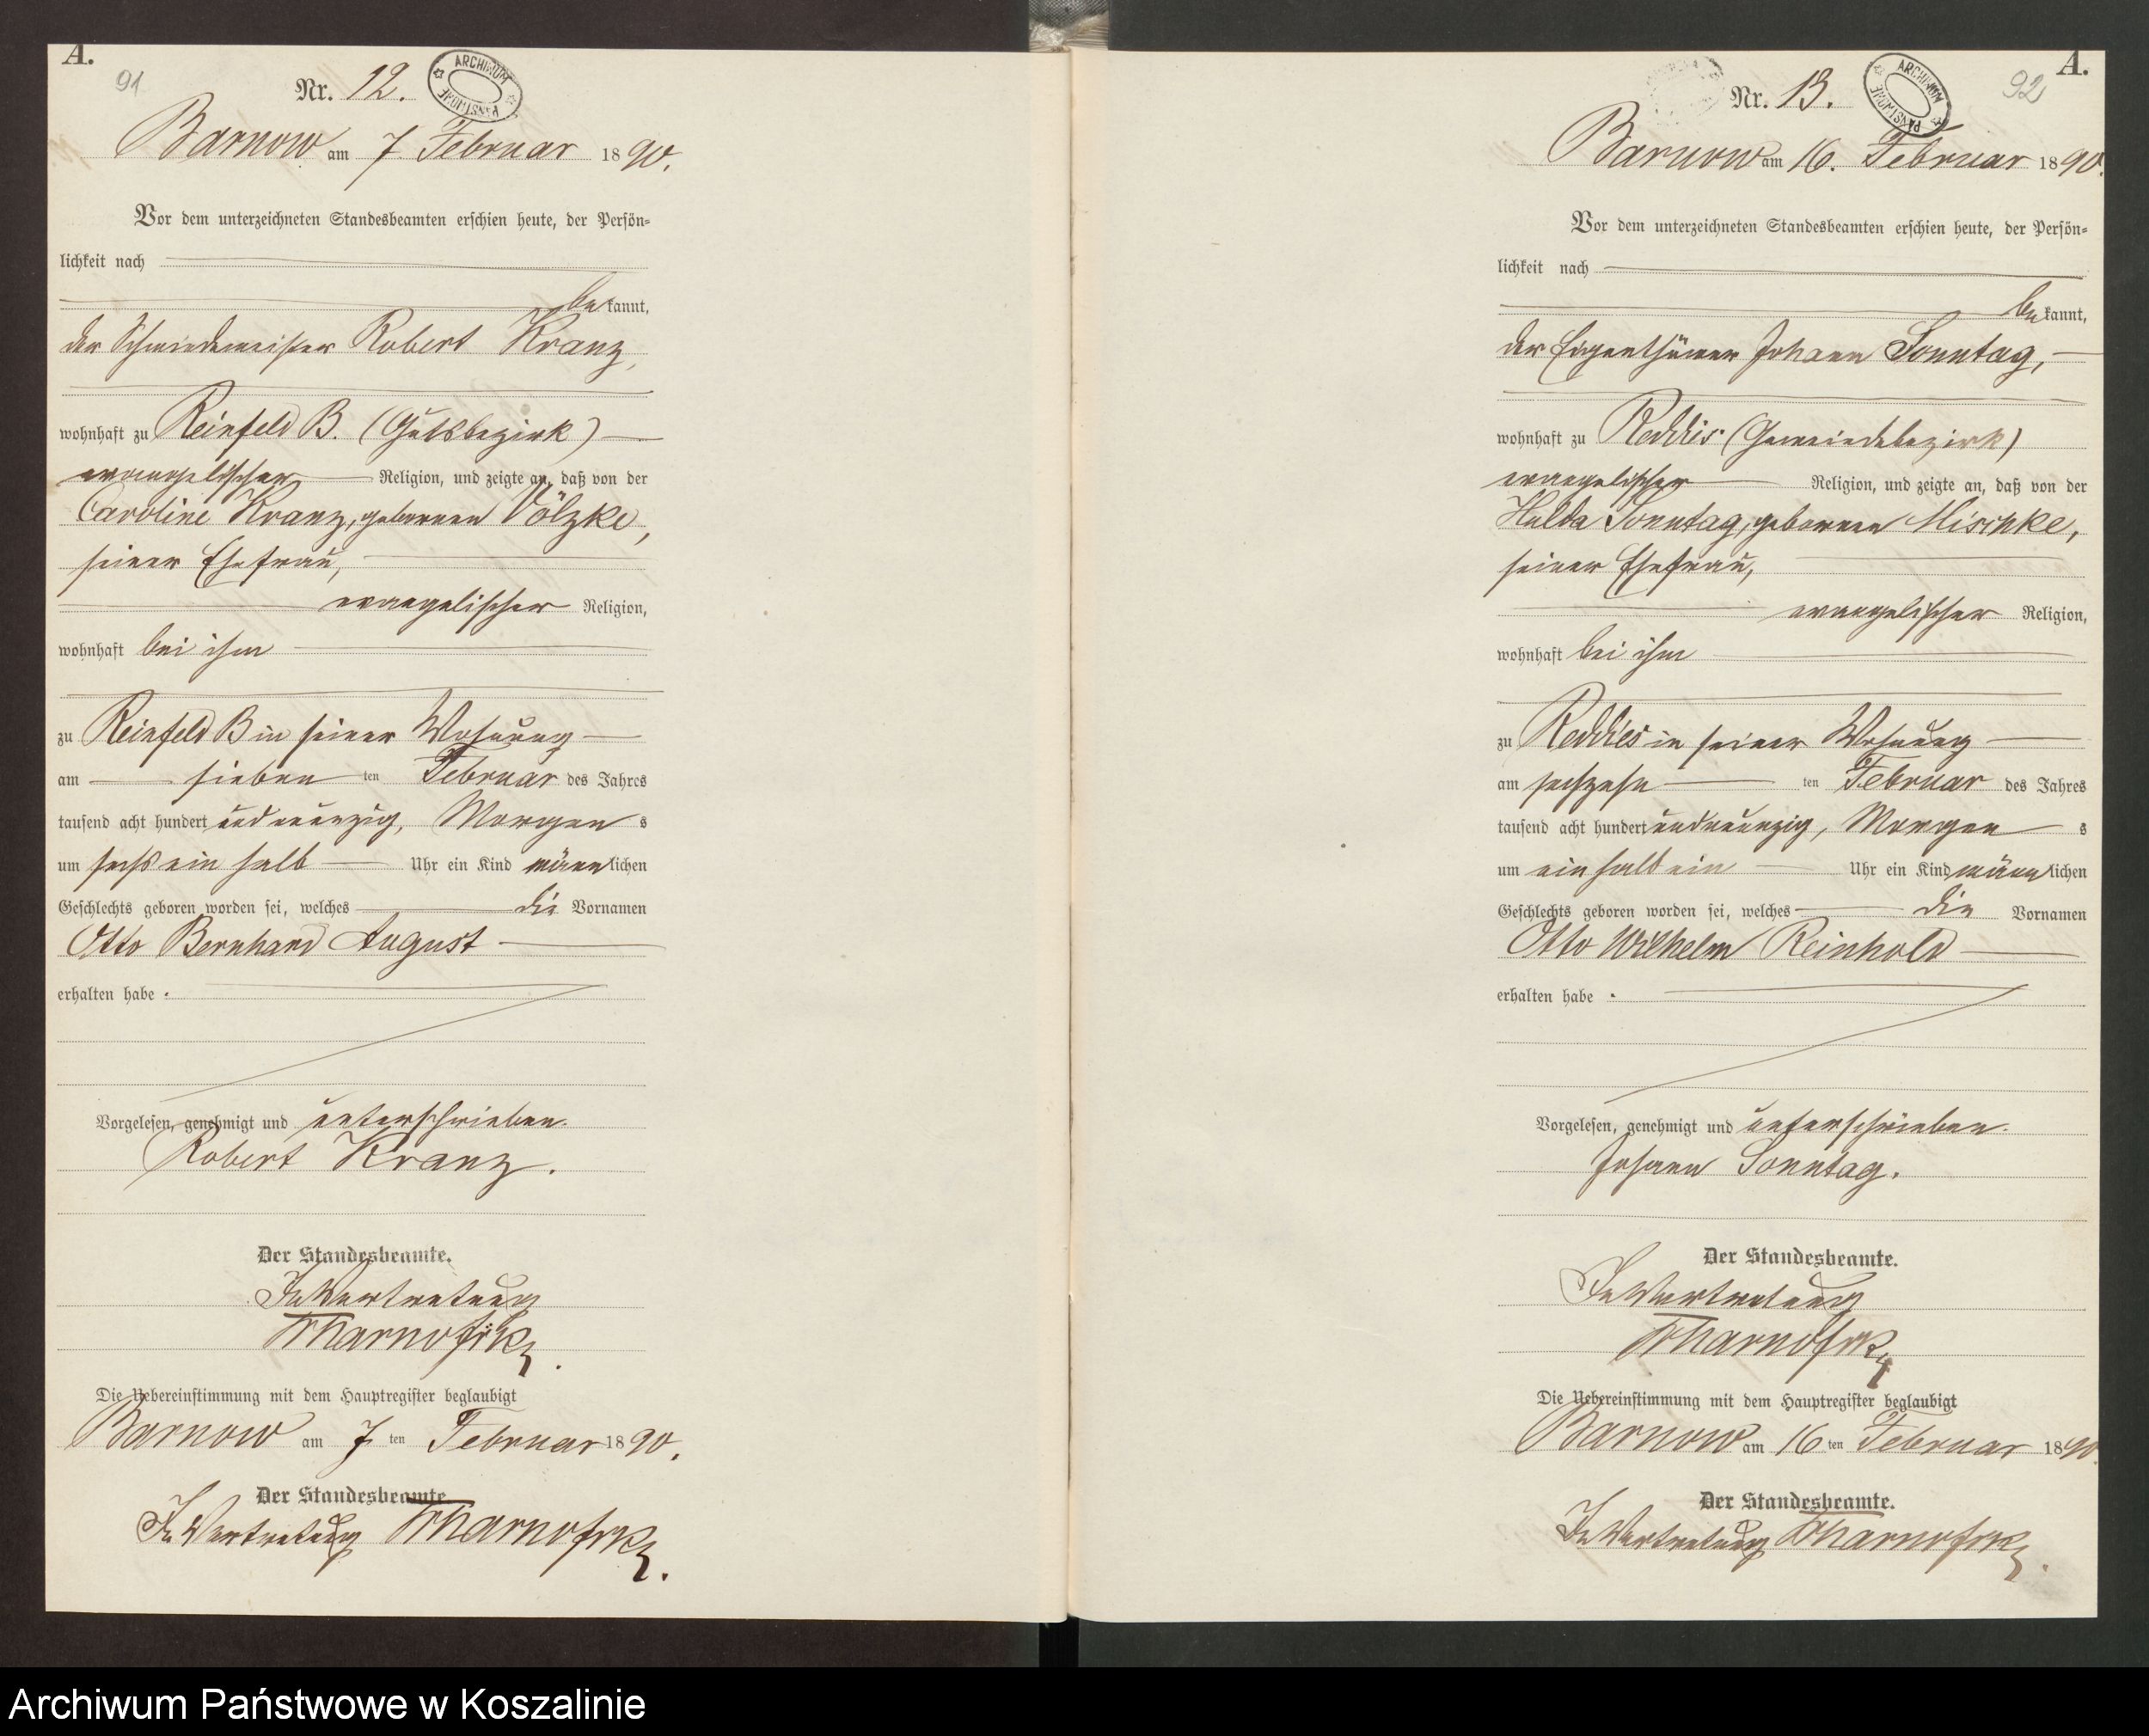 A.
91
Nr. 12.
ARCHIWUM PAŃSTWOWE
Barnow am 7. Februar 1890.
Vor dem unterzeichneten Standesbeamten erschien heute, der Persön-
lichkeit nach
be kannt,
der Schmiedemeister Robert Kranz,
wohnhaft zu Reinfeld B. (Gutsbezirk)
evangelischer Religion, und zeigte an, daß von der
Caroline Kranz, geborenen Völzke,
seiner Ehefrau,
evangelischer Religion,
wohnhaft bei ihm
zu Reinfeld B in seiner Wohnung
am sieben ten Februar des Jahres
tausend acht hundert und neunzig, Morgen s
um sechs ein halb Uhr ein Kind männ lichen
Geschlechts geboren worden sei, welches die Vornamen
Otto Bernhard August
erhalten habe.
Vorgelesen, genehmigt und unterschrieben.
Robert Kranz.
Der Standesbeamte.
In Vertretung
Die Uebereinstimmung mit dem Hauptregister beglaubigt
Barnow am 7 ten Februar 1890.
Der Standesbeamte.
In Vertretung
A.
92
Nr. 13.
ARCHIWUM PAŃSTWOWE
Barnow am 16. Februar 1890.
Vor dem unterzeichneten Standesbeamten erschien heute, der Persön-
lichkeit nach
be kannt,
der Eigenthümer Johann Sonntag,
wohnhaft zu Reddies (Gemeindebezirk)
evangelischer Religion, und zeigte an, daß von der
Hulda Sonntag, geborenen Mischke,
seiner Ehefrau,
evangelischer Religion,
wohnhaft bei ihm
zu Reddies in seiner Wohnung
am sechzehn ten Februar des Jahres
tausend acht hundert und neunzig, Morgen s
um ein halb ein Uhr ein Kind männ lichen
Geschlechts geboren worden sei, welches die Vornamen
Otto Wilhelm Reinhold
erhalten habe.
Vorgelesen, genehmigt und unterschrieben.
Johann Sonntag.
Der Standesbeamte.
In Vertretung
Die Uebereinstimmung mit dem Hauptregister beglaubigt
Barnow am 16 ten Februar 1890.
Der Standesbeamte.
In Vertretung
Archiwum Państwowe w Koszalinie